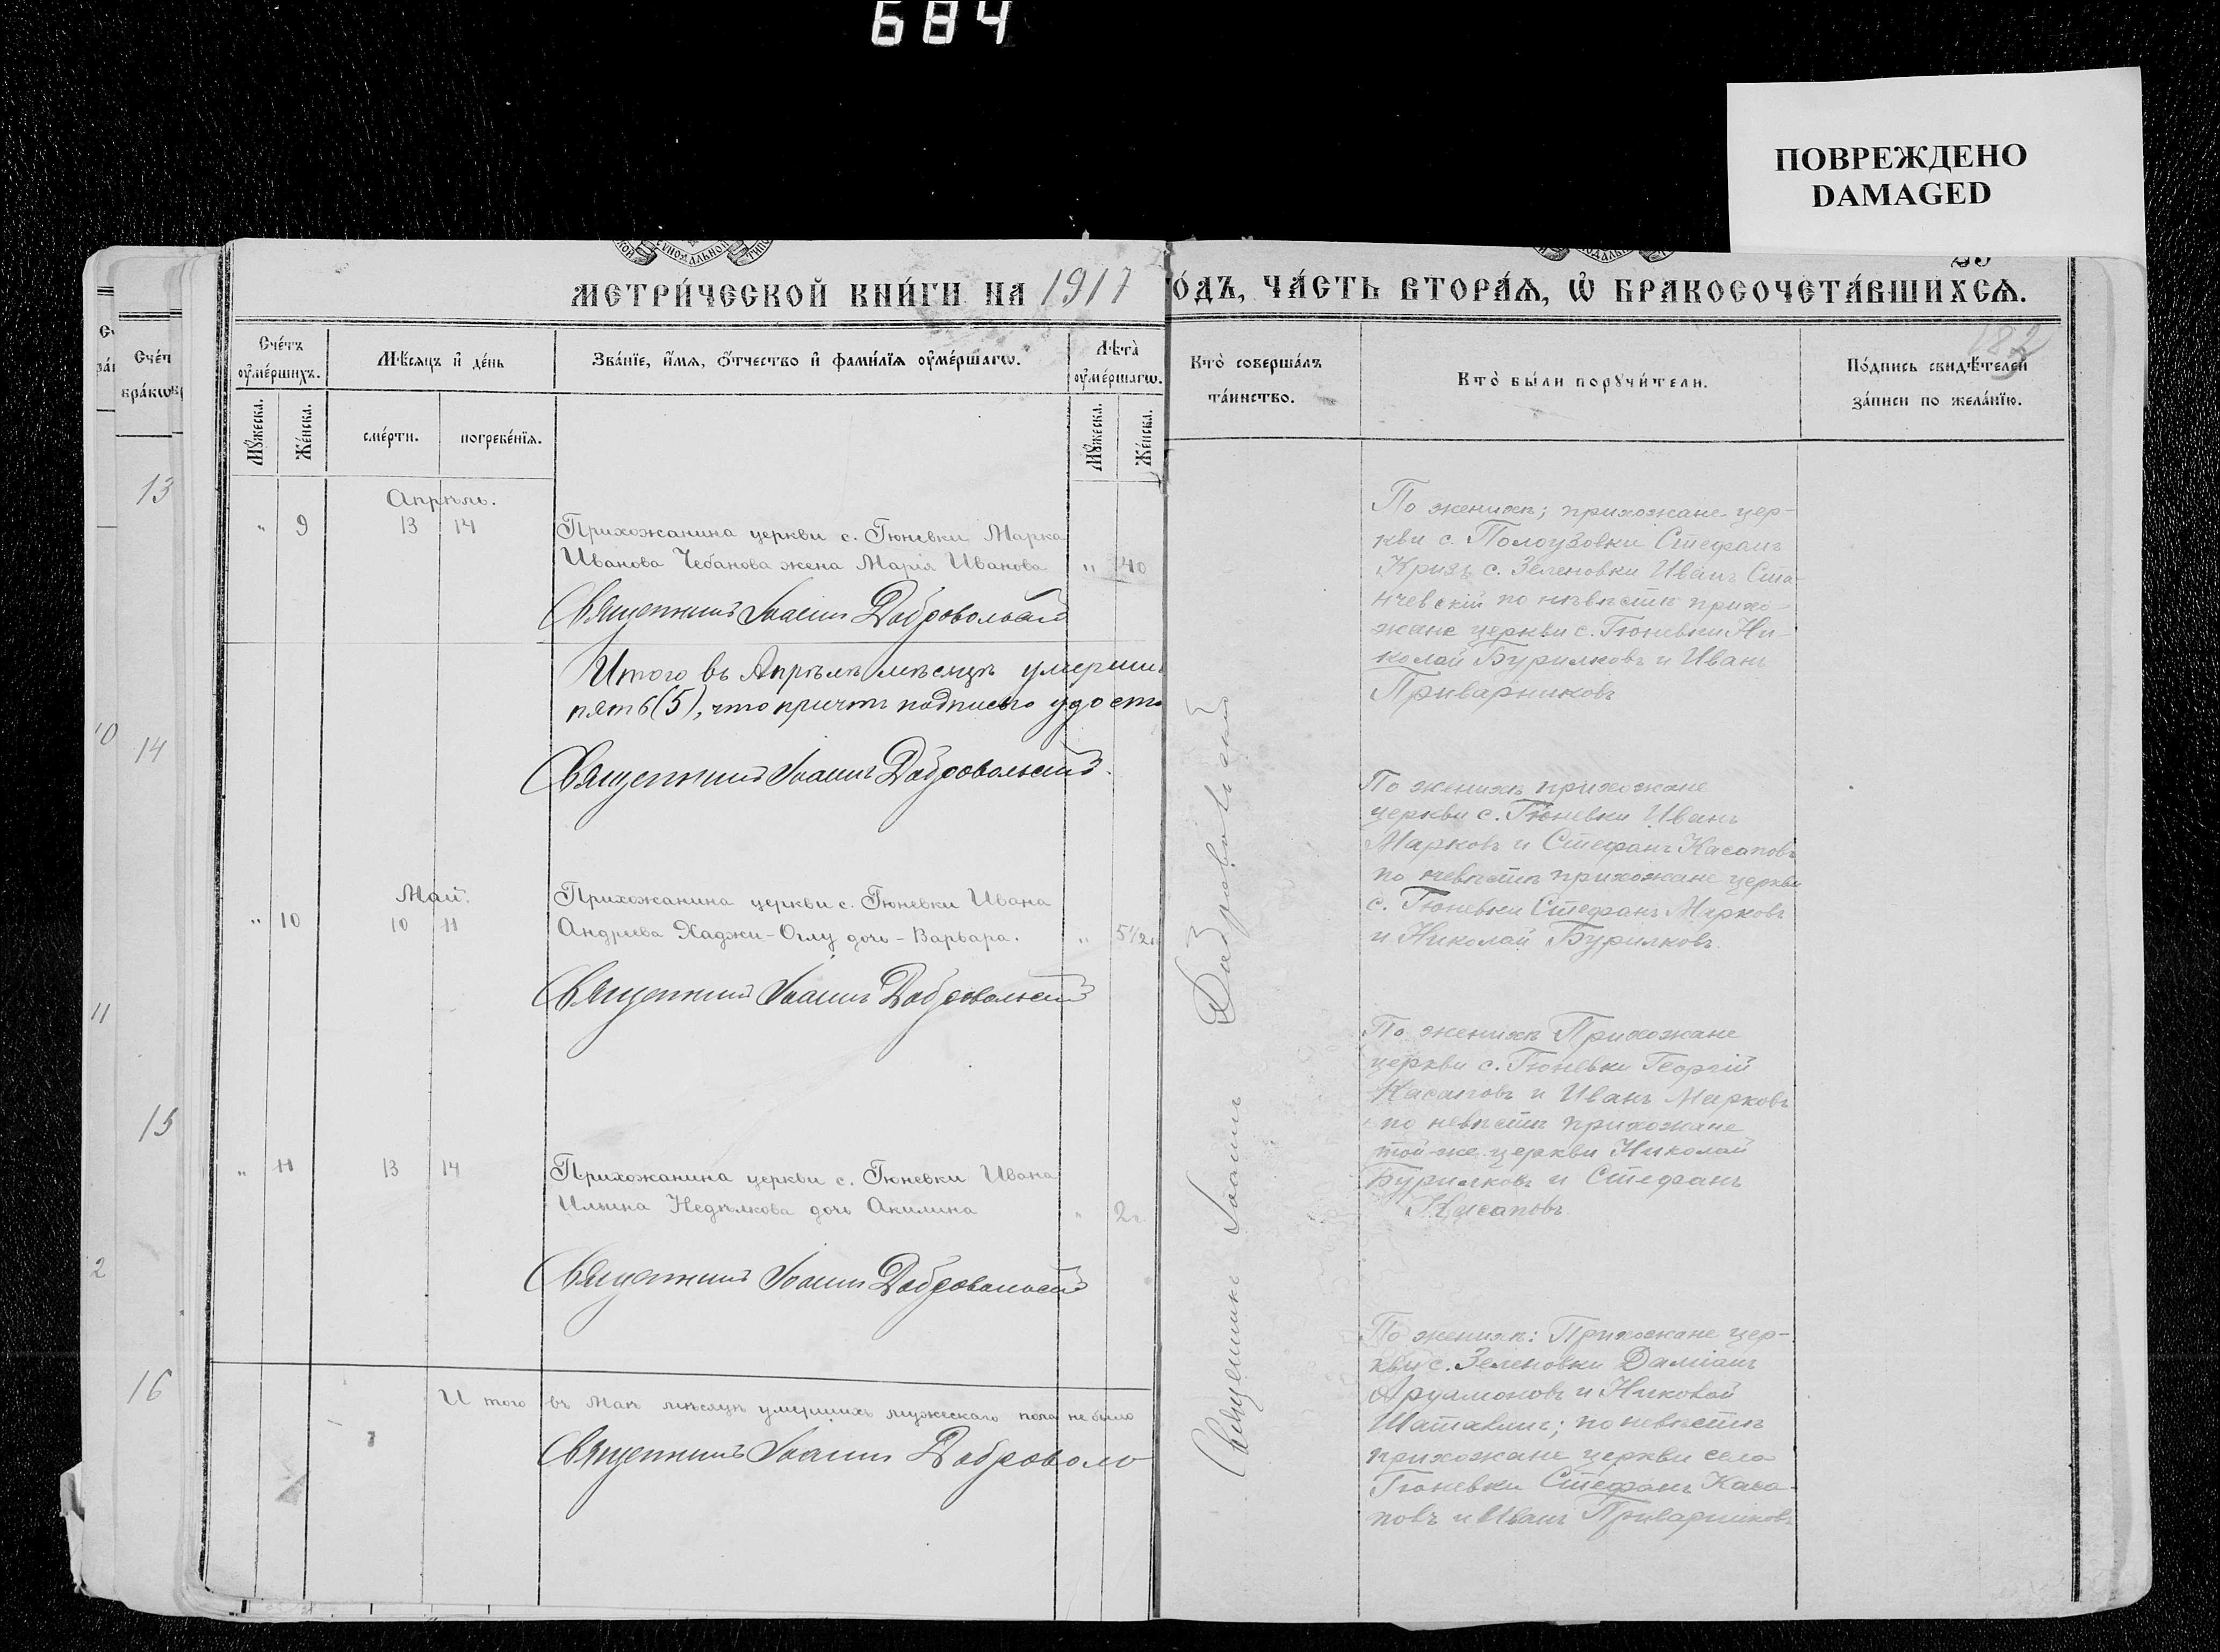 684
ПОВРЕЖДЕНО
DAMAGED
МЕТРИ́ЧЕСКОЙ КНИ́ГИ НА 1917
О́ДЪ, ЧА́СТЬ ВТОРА́Ѧ, Ѡ҆ БРАКОСОЧЕТА́ВШИХСѦ.
182
Сче́тъ
оу҆ме́ршихъ.
Мꙋ́жеска.
Же́нска.
Мѣ́сяцъ и҆ де́нь
сме́рти.
погребе́нїѧ.
Зва́нїе, и҆́мѧ, ѻ҆́тчество и҆ фами́лїѧ оу҆ме́ршагѡ.
Лѣта̀
оу҆ме́ршагѡ.
Мꙋ́жеска.
Же́нска.
Сче́т
бра́кѡвъ
13
14
15
16
10
11
2
Апрѣль.
" 9 13 14
Прихожанина церкви с. Гюневки Марка
Иванова Чебанова жена Марія Иванова " 40
Священникъ Іоаннъ Добровольскій
Итого въ Апрѣлѣ мѣсяцѣ умерши
пять (5), что причтъ подписью удосто
Священникъ Іоаннъ Добровольскій
Май.
" 10 10 11
Прихожанина церкви с. Гюневки Ивана
Андреева Хаджи-Оглу дочь - Варвара. " 5 1/2
Священникъ Іоаннъ Добровольскій
" 11 13 14
Прихожанина церкви с. Гюневки Ивана
Ильина Недѣлкова дочь Акилина " 2
Священникъ Іоаннъ Добровольскій
Итого въ Маѣ мѣсяцѣ умершихъ мужескаго пола не было
Священникъ Іоаннъ Доброволь
Кто̀ соверша́лъ
та́инство.
Кто̀ бы́ли порꙋчи́тели.
По́дпись свидѣ́телей
за́писи по жела́нїю.
Священникъ Іоаннъ Добровольскій
По женихѣ; прихожане цер-
кви с. Пологузовки Стефанъ
с. Зеленовки Иванъ Ста-
нчевскій по невѣстѣ прихо-
жане церкви с. Гюневки Ни-
колай Бурилковъ и Иванъ
Приварниковъ
По женихѣ прихожане
церкви с. Гюневки Иванъ
Марковъ и Стефанъ Касаповъ
по невѣстѣ прихожане церкви
с. Гюневки Стефанъ Марковъ
и Николай Бурилковъ.
По женихѣ Прихожане
церкви с. Гюневки Георгій
Касаповъ и Иванъ Марковъ
по невѣстѣ прихожане
той-же церкви Николай
Бурилковъ и Стефанъ
Касаповъ
По женихѣ: Прихожане цер-
кви с. Зеленовки Даміанъ
и Николай
по невѣстѣ
прихожане церкви села
Гюневки Стефанъ Каса-
повъ и Иванъ Приварниковъ